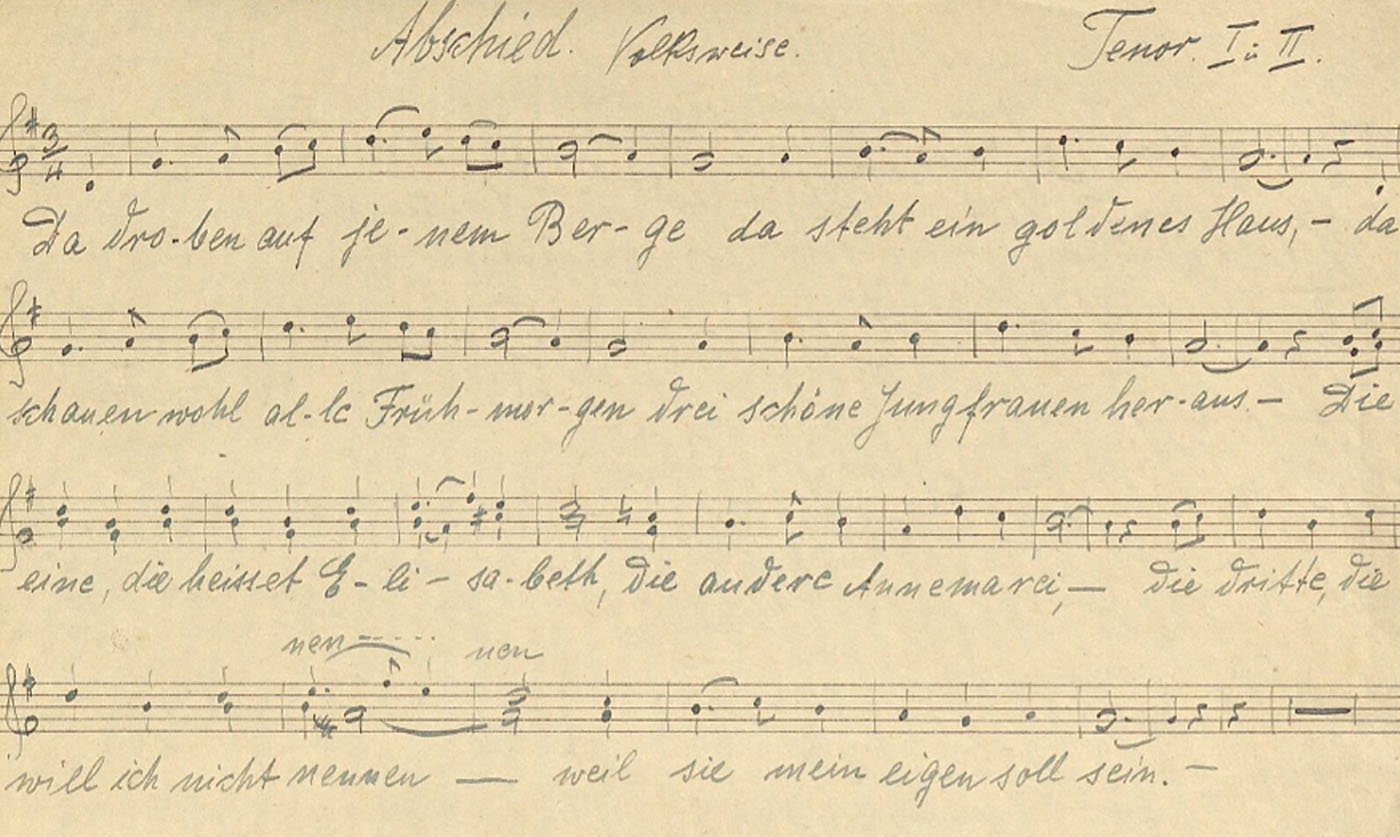 Abschied. Volksweise. Tenor. I u II.
3/4
Da dro-ben auf je-nem Ber-ge da steht ein goldenes Haus,- da
schauen wohl al-le Früh-mor-gen drei schöne Jungfrauen her-aus- Die
eine, die heisset E-li-sa-beth, die andere Annemarei,- die dritte, die
nen----- nen
will ich nicht nennen — weil sie mein eigen soll sein.-